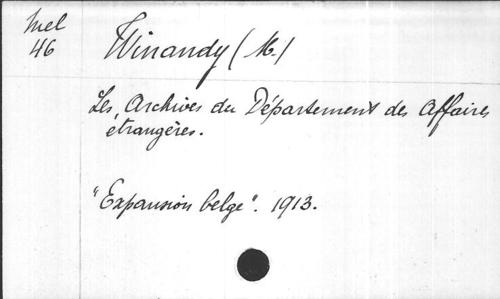 Mel
46
Winandy (M.)
Les Archives du Département des Affaires
étrangères.
"Expansion belge". 1913.